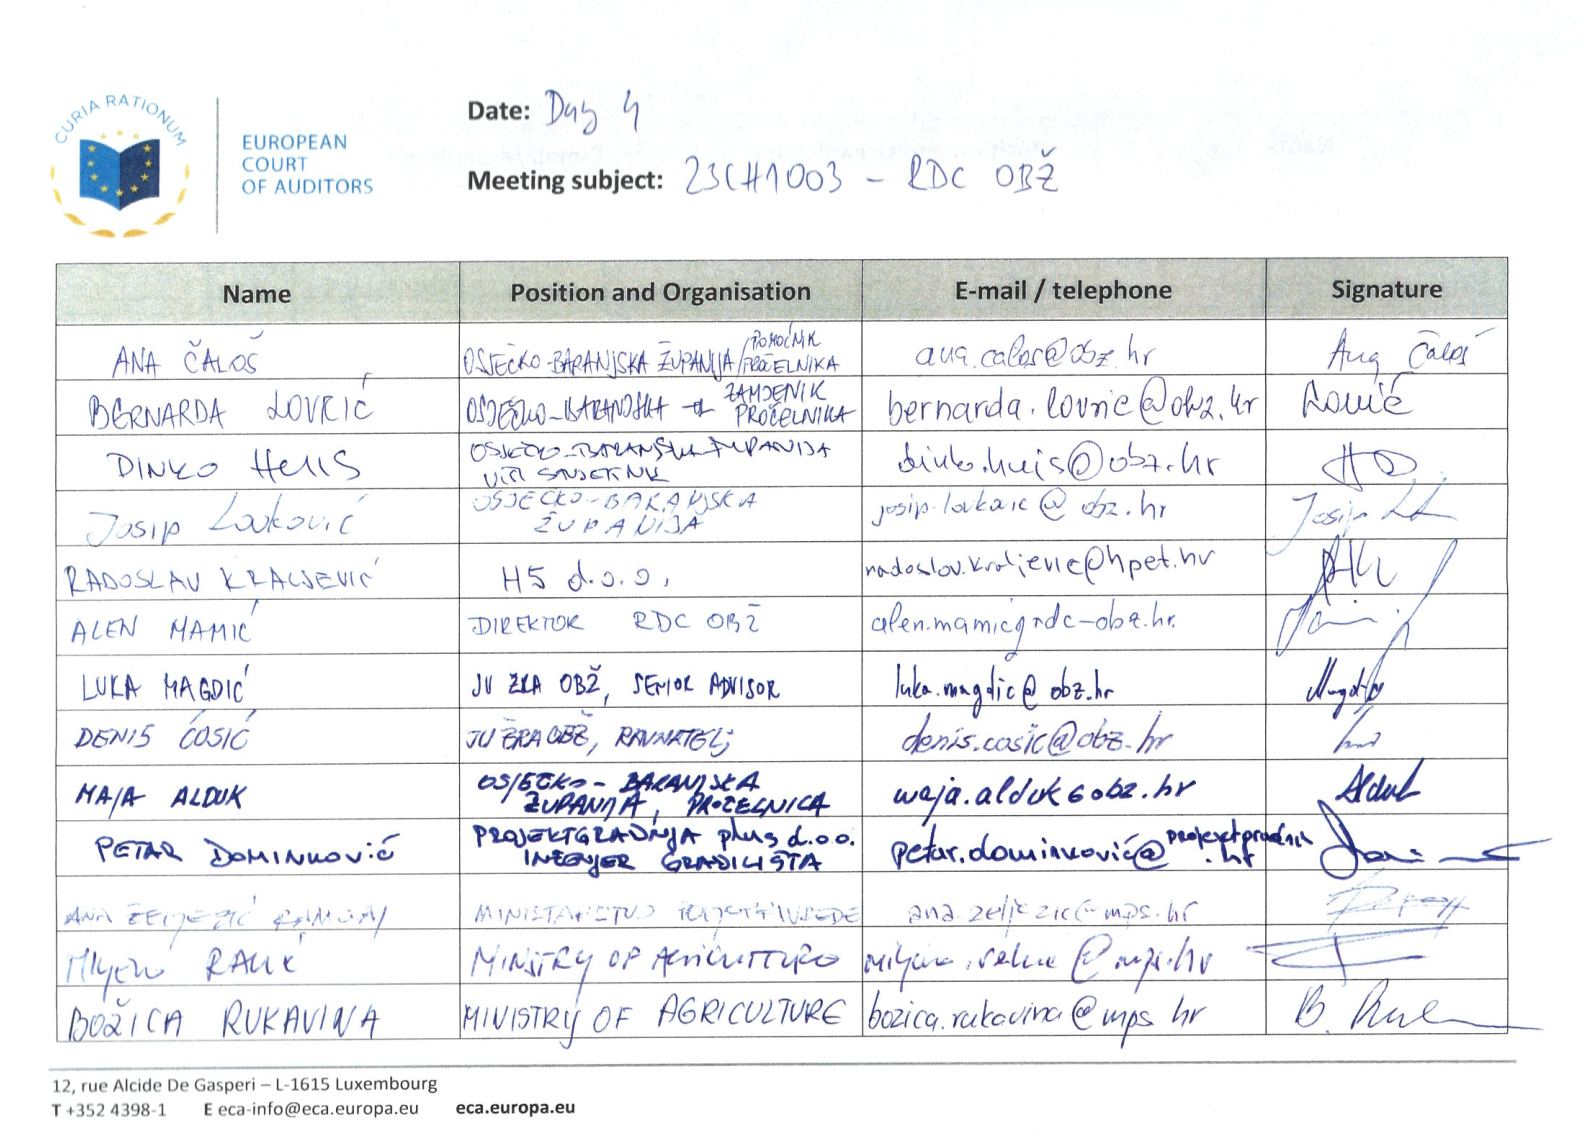 CURIA RATIONUM
EUROPEAN
COURT
OF AUDITORS
Date: Day 4
Meeting subject: 23CH1003 - RDC OBŽ
Name Position and Organisation E-mail / telephone Signature
ANA ČALOŠ OSJEČKO-BARANJSKA ŽUPANIJA/POMOĆNIK PROČELNIKA ana.calos@obz.hr Ana Čaloš
BERNARDA LOVRIĆ OSJEČKO-BARANJSKA ZAMJENIK PROČELNIKA bernarda.lovric@obz.hr Lovrić
DINKO HEIIS OSJEČKO-BARANJSKA ŽUPANIJA
VIŠI SAVJETNIK dinko.heis@obz.hr
Josip Lovković OSJEČKO-BARANJSKA
ŽUPANIJA @obz.hr Josip
RADOSLAV KRALJEVIĆ H5 d.o.o. radoslov.kraljevic@hpet.hr
ALEN MAMIĆ DIREKTOR RDC OBŽ alen.mamic@rdc-obz.hr
LUKA MAGDIĆ JU ŽRA OBŽ, SENIOR ADVISOR luka.magdic@obz.hr
DENIS ĆOSIĆ JU ŽRA OBŽ, RAVNATELJ denis.cosic@obz.hr
MAJA ALDUK OSJEČKO-BARANJSKA
ŽUPANIJA, PROČELNICA maja.alduk@obz.hr Alduk
PETAR DOMINKOVIĆ PROJEKTGRADNJA plus d.o.o.
INŽENJER GRADILIŠTA petar.dominković@
.hr
ANA ŽELJEZIĆ MINISTARSTVO POLJOPRIVREDE ana.zeljezic@mps.hr
RAKIĆ MINISTRY OF AGRICULTURE @mps.hr
BOŽICA RUKAVINA MINISTRY OF AGRICULTURE bozica.rukavina@mps hr B.
12, rue Alcide De Gasperi – L-1615 Luxembourg
T +352 4398-1 E eca-info@eca.europa.eu eca.europa.eu